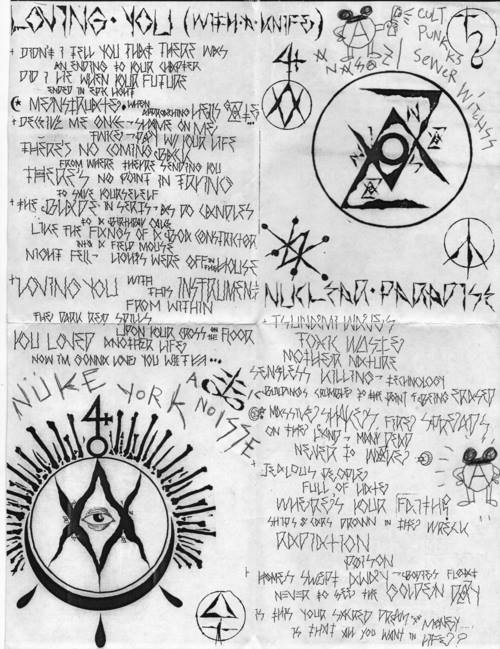 LOVING • YOU (WITH • A • KNIFE)
DIDN'T I TELL YOU THAT THERE WAS
AN ENDING TO YOUR CHAPTER
DID I LIE WHEN YOUR FUTURE
ENDED IN
WHEN APPROACHING
DECEIVE ME ONCE SHAME ON ME
TWICE PAY W/ YOUR LIFE
THERE'S NO COMING BACK
FROM WHERE THEY'RE SENDING YOU
THERE'S NO POINT IN TRYING
TO SAVE YOURSELF
THE BLADE IN AS DO CANDLES
TO A BIRTHDAY CAKE
LIKE THE FANGS OF A BOA CONSTRICTOR
INTO A FIELD MOUSE
NIGHT FELL LIGHTS WERE OFF IN THE HOUSE
LOVING YOU WITH THIS INSTRUMENT
FROM WITHIN
THE DARK RED SPILLS
UPON YOUR CROSS ON THE FLOOR
YOU LOVED ANOTHER LIFE
NOW I'M GONNA LOVE YOU WITH A...
CULT
PUNKS
SEWER
WITCHSS
NÜKE YORK
A
NOISSE
NUCLEAR • PARADISE
TSUNAMI WAVES
TOXIC WASTE
MOTHER NATURE
SENSLESS KILLING - TECHNOLOGY
BUILDINGS CRUMBLE TO THE POINT OF BEING ERASED
MASSIVE SHAKERS, FIRE SPREADS
ON THE LAND MANY DEAD
NEVER TO WAKE
JEALOUS PEOPLE
FULL OF HATE
WHERE'S YOUR FAITH
SHIPS & CARS DROWN IN THE WRECK
RADIATION
POISON
HOMES SWEPT AWAY BODIES FLOAT
NEVER TO SEE THE GOLDEN DAY
IS THIS YOUR SACRED DREAM MONEY....
IS THAT ALL YOU WANT IN LIFE??